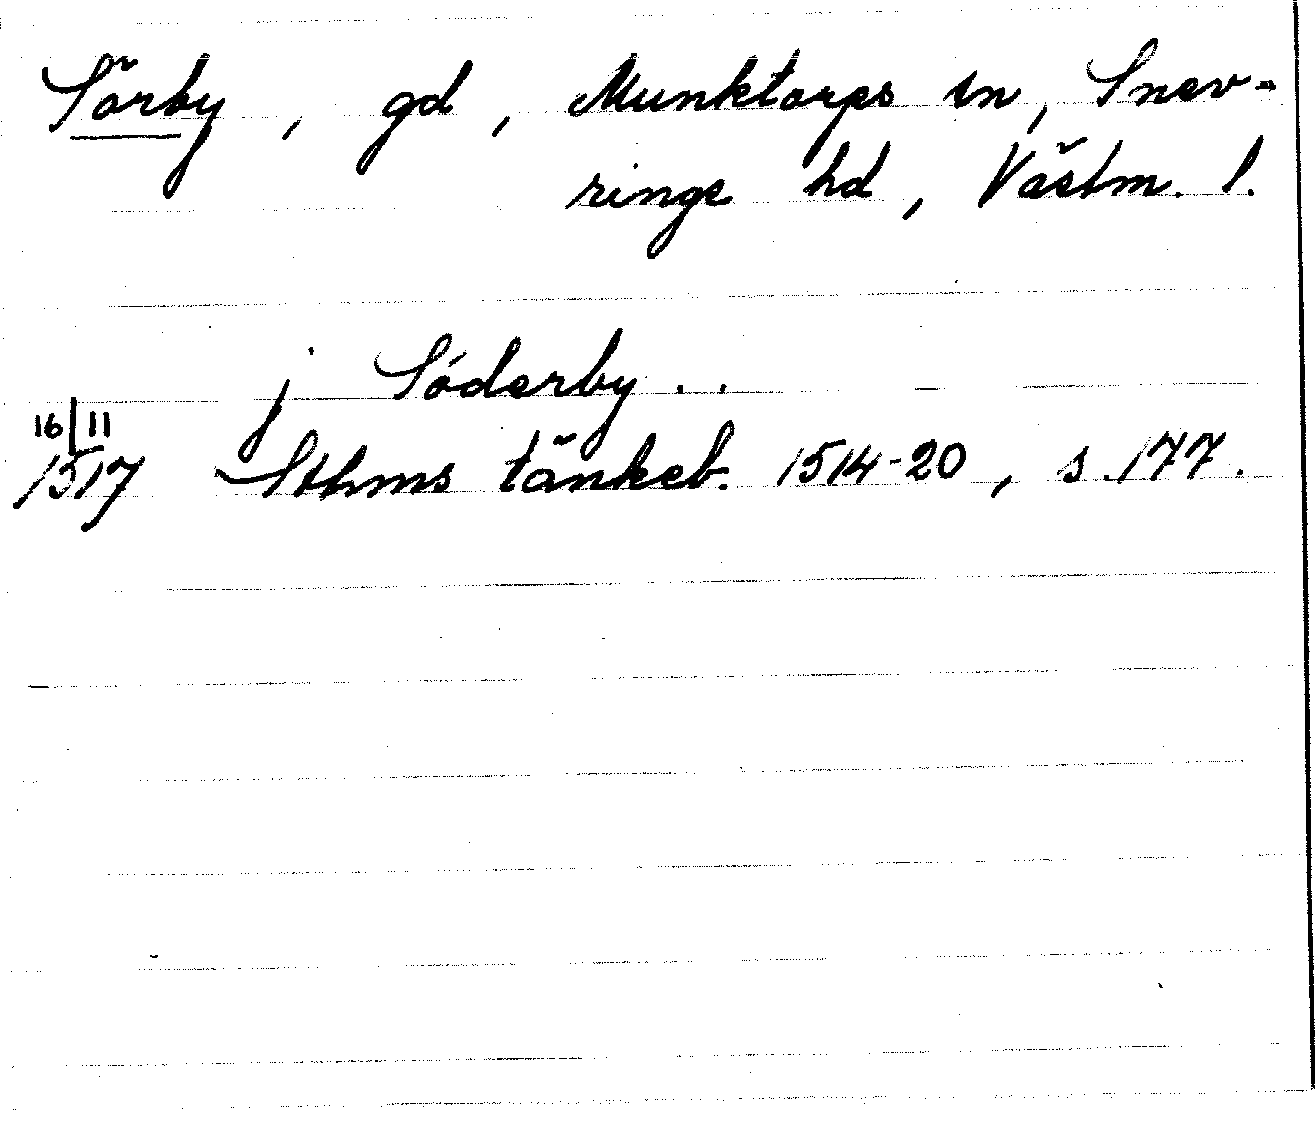 Sörby, gd, Munktorps sn, Snev-
rings hd, Västm. l.
j Söderby . .
16/11
1517 Sthms tänkeb. 1514-20, s. 177.